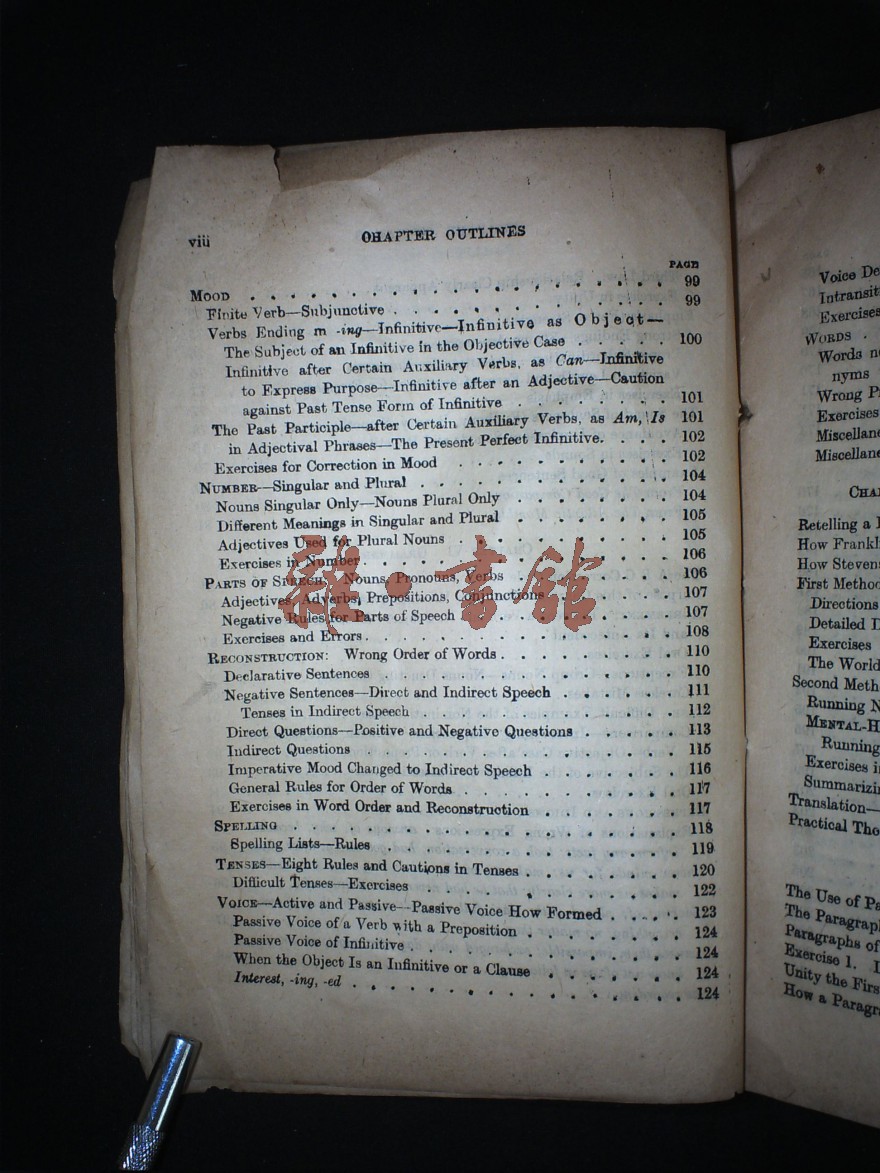 viii
CHAPTER OUTLINES
PAGE
MOOD . . . . . . . . . . . . . . . . . . . 99
Finite Verb—Subjunctive . . . . . . . . . . . . . 99
Verbs Ending in -ing—Infinitive—Infinitive as Object—
The Subject of an Infinitive in the Objective Case . . . . . 100
Infinitive after Certain Auxiliary Verbs, as Can—Infinitive
to Express Purpose—Infinitive after an Adjective—Caution
against Past Tense Form of Infinitive . . . . . . . . 101
The Past Participle—after Certain Auxiliary Verbs, as Am, Is 101
in Adjectival Phrases—The Present Perfect Infinitive. . . . 102
Exercises for Correction in Mood . . . . . . . . . . 102
NUMBER—Singular and Plural . . . . . . . . . . . . 104
Nouns Singular Only—Nouns Plural Only . . . . . . . . 104
Different Meanings in Singular and Plural . . . . . . . . 105
Adjectives Used for Plural Nouns . . . . . . . . . . 105
Exercises in Number . . . . . . . . . . . . . . . 106
PARTS OF SPEECH: Nouns, Pronouns, Verbs . . . . . . . . 106
Adjectives, Adverbs, Prepositions, Conjunctions . . . . . . 107
Negative Rules for Parts of Speech . . . . . . . . . . 107
Exercises and Errors . . . . . . . . . . . . . . . 108
RECONSTRUCTION: Wrong Order of Words . . . . . . . . . 110
Declarative Sentences . . . . . . . . . . . . . . 110
Negative Sentences—Direct and Indirect Speech . . . . . . 111
Tenses in Indirect Speech . . . . . . . . . . . . 112
Direct Questions—Positive and Negative Questions . . . . . 113
Indirect Questions . . . . . . . . . . . . . . . 115
Imperative Mood Changed to Indirect Speech . . . . . . . 116
General Rules for Order of Words . . . . . . . . . . 117
Exercises in Word Order and Reconstruction . . . . . . . 117
SPELLING . . . . . . . . . . . . . . . . . . 118
Spelling Lists—Rules . . . . . . . . . . . . . . 119
TENSES—Eight Rules and Cautions in Tenses . . . . . . . . 120
Difficult Tenses—Exercises . . . . . . . . . . . . 122
VOICE—Active and Passive—Passive Voice How Formed . . . . 123
Passive Voice of a Verb with a Preposition . . . . . . . . 124
Passive Voice of Infinitive . . . . . . . . . . . . . 124
When the Object Is an Infinitive or a Clause . . . . . . . 124
Interest, -ing, -ed . . . . . . . . . . . . . . . . 124
雜·書館
Voice
Intransit
Exercises
WORDS .
Words
nyms
Wrong
Exercises
Miscellan
Miscellan
Retelling a
How Frankli
How Steven
First Metho
Directions
Detailed
Exercises
The World
Second Meth
Running
MENTAL-H
Running
Exercises
Summarizi
Translation—
Practical
The Use of
The Paragrap
Paragraphs of
Exercise 1.
Unity the Firs
How a Paragr